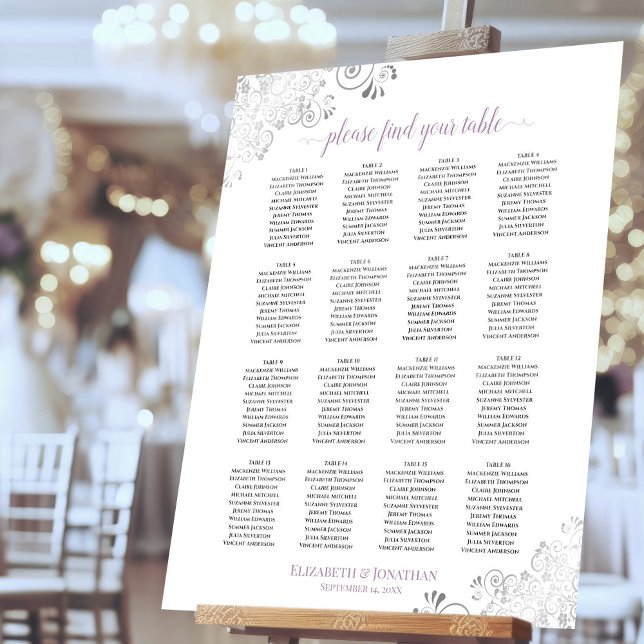 please find your table
TABLE 1
Mackenzie Williams
Elizabeth Thompson
Claire Johnson
Michael Mitchell
Suzanne Sylvester
Jeremy Thomas
William Edwards
Summer Jackson
Julia Silverton
Vincent Anderson
TABLE 2
Mackenzie Williams
Elizabeth Thompson
Claire Johnson
Michael Mitchell
Suzanne Sylvester
Jeremy Thomas
William Edwards
Summer Jackson
Julia Silverton
Vincent Anderson
TABLE 3
Mackenzie Williams
Elizabeth Thompson
Claire Johnson
Michael Mitchell
Suzanne Sylvester
Jeremy Thomas
William Edwards
Summer Jackson
Julia Silverton
Vincent Anderson
TABLE 4
Mackenzie Williams
Elizabeth Thompson
Claire Johnson
Michael Mitchell
Suzanne Sylvester
Jeremy Thomas
William Edwards
Summer Jackson
Julia Silverton
Vincent Anderson
TABLE 5
Mackenzie Williams
Elizabeth Thompson
Claire Johnson
Michael Mitchell
Suzanne Sylvester
Jeremy Thomas
William Edwards
Summer Jackson
Julia Silverton
Vincent Anderson
TABLE 6
Mackenzie Williams
Elizabeth Thompson
Claire Johnson
Michael Mitchell
Suzanne Sylvester
Jeremy Thomas
William Edwards
Summer Jackson
Julia Silverton
Vincent Anderson
TABLE 7
Mackenzie Williams
Elizabeth Thompson
Claire Johnson
Michael Mitchell
Suzanne Sylvester
Jeremy Thomas
William Edwards
Summer Jackson
Julia Silverton
Vincent Anderson
TABLE 8
Mackenzie Williams
Elizabeth Thompson
Claire Johnson
Michael Mitchell
Suzanne Sylvester
Jeremy Thomas
William Edwards
Summer Jackson
Julia Silverton
Vincent Anderson
TABLE 9
Mackenzie Williams
Elizabeth Thompson
Claire Johnson
Michael Mitchell
Suzanne Sylvester
Jeremy Thomas
William Edwards
Summer Jackson
Julia Silverton
Vincent Anderson
TABLE 10
Mackenzie Williams
Elizabeth Thompson
Claire Johnson
Michael Mitchell
Suzanne Sylvester
Jeremy Thomas
William Edwards
Summer Jackson
Julia Silverton
Vincent Anderson
TABLE 11
Mackenzie Williams
Elizabeth Thompson
Claire Johnson
Michael Mitchell
Suzanne Sylvester
Jeremy Thomas
William Edwards
Summer Jackson
Julia Silverton
Vincent Anderson
TABLE 12
Mackenzie Williams
Elizabeth Thompson
Claire Johnson
Michael Mitchell
Suzanne Sylvester
Jeremy Thomas
William Edwards
Summer Jackson
Julia Silverton
Vincent Anderson
TABLE 13
Mackenzie Williams
Elizabeth Thompson
Claire Johnson
Michael Mitchell
Suzanne Sylvester
Jeremy Thomas
William Edwards
Summer Jackson
Julia Silverton
Vincent Anderson
TABLE 14
Mackenzie Williams
Elizabeth Thompson
Claire Johnson
Michael Mitchell
Suzanne Sylvester
Jeremy Thomas
William Edwards
Summer Jackson
Julia Silverton
Vincent Anderson
TABLE 15
Mackenzie Williams
Elizabeth Thompson
Claire Johnson
Michael Mitchell
Suzanne Sylvester
Jeremy Thomas
William Edwards
Summer Jackson
Julia Silverton
Vincent Anderson
TABLE 16
Mackenzie Williams
Elizabeth Thompson
Claire Johnson
Michael Mitchell
Suzanne Sylvester
Jeremy Thomas
William Edwards
Summer Jackson
Julia Silverton
Vincent Anderson
Elizabeth & Jonathan
September 14, 20XX